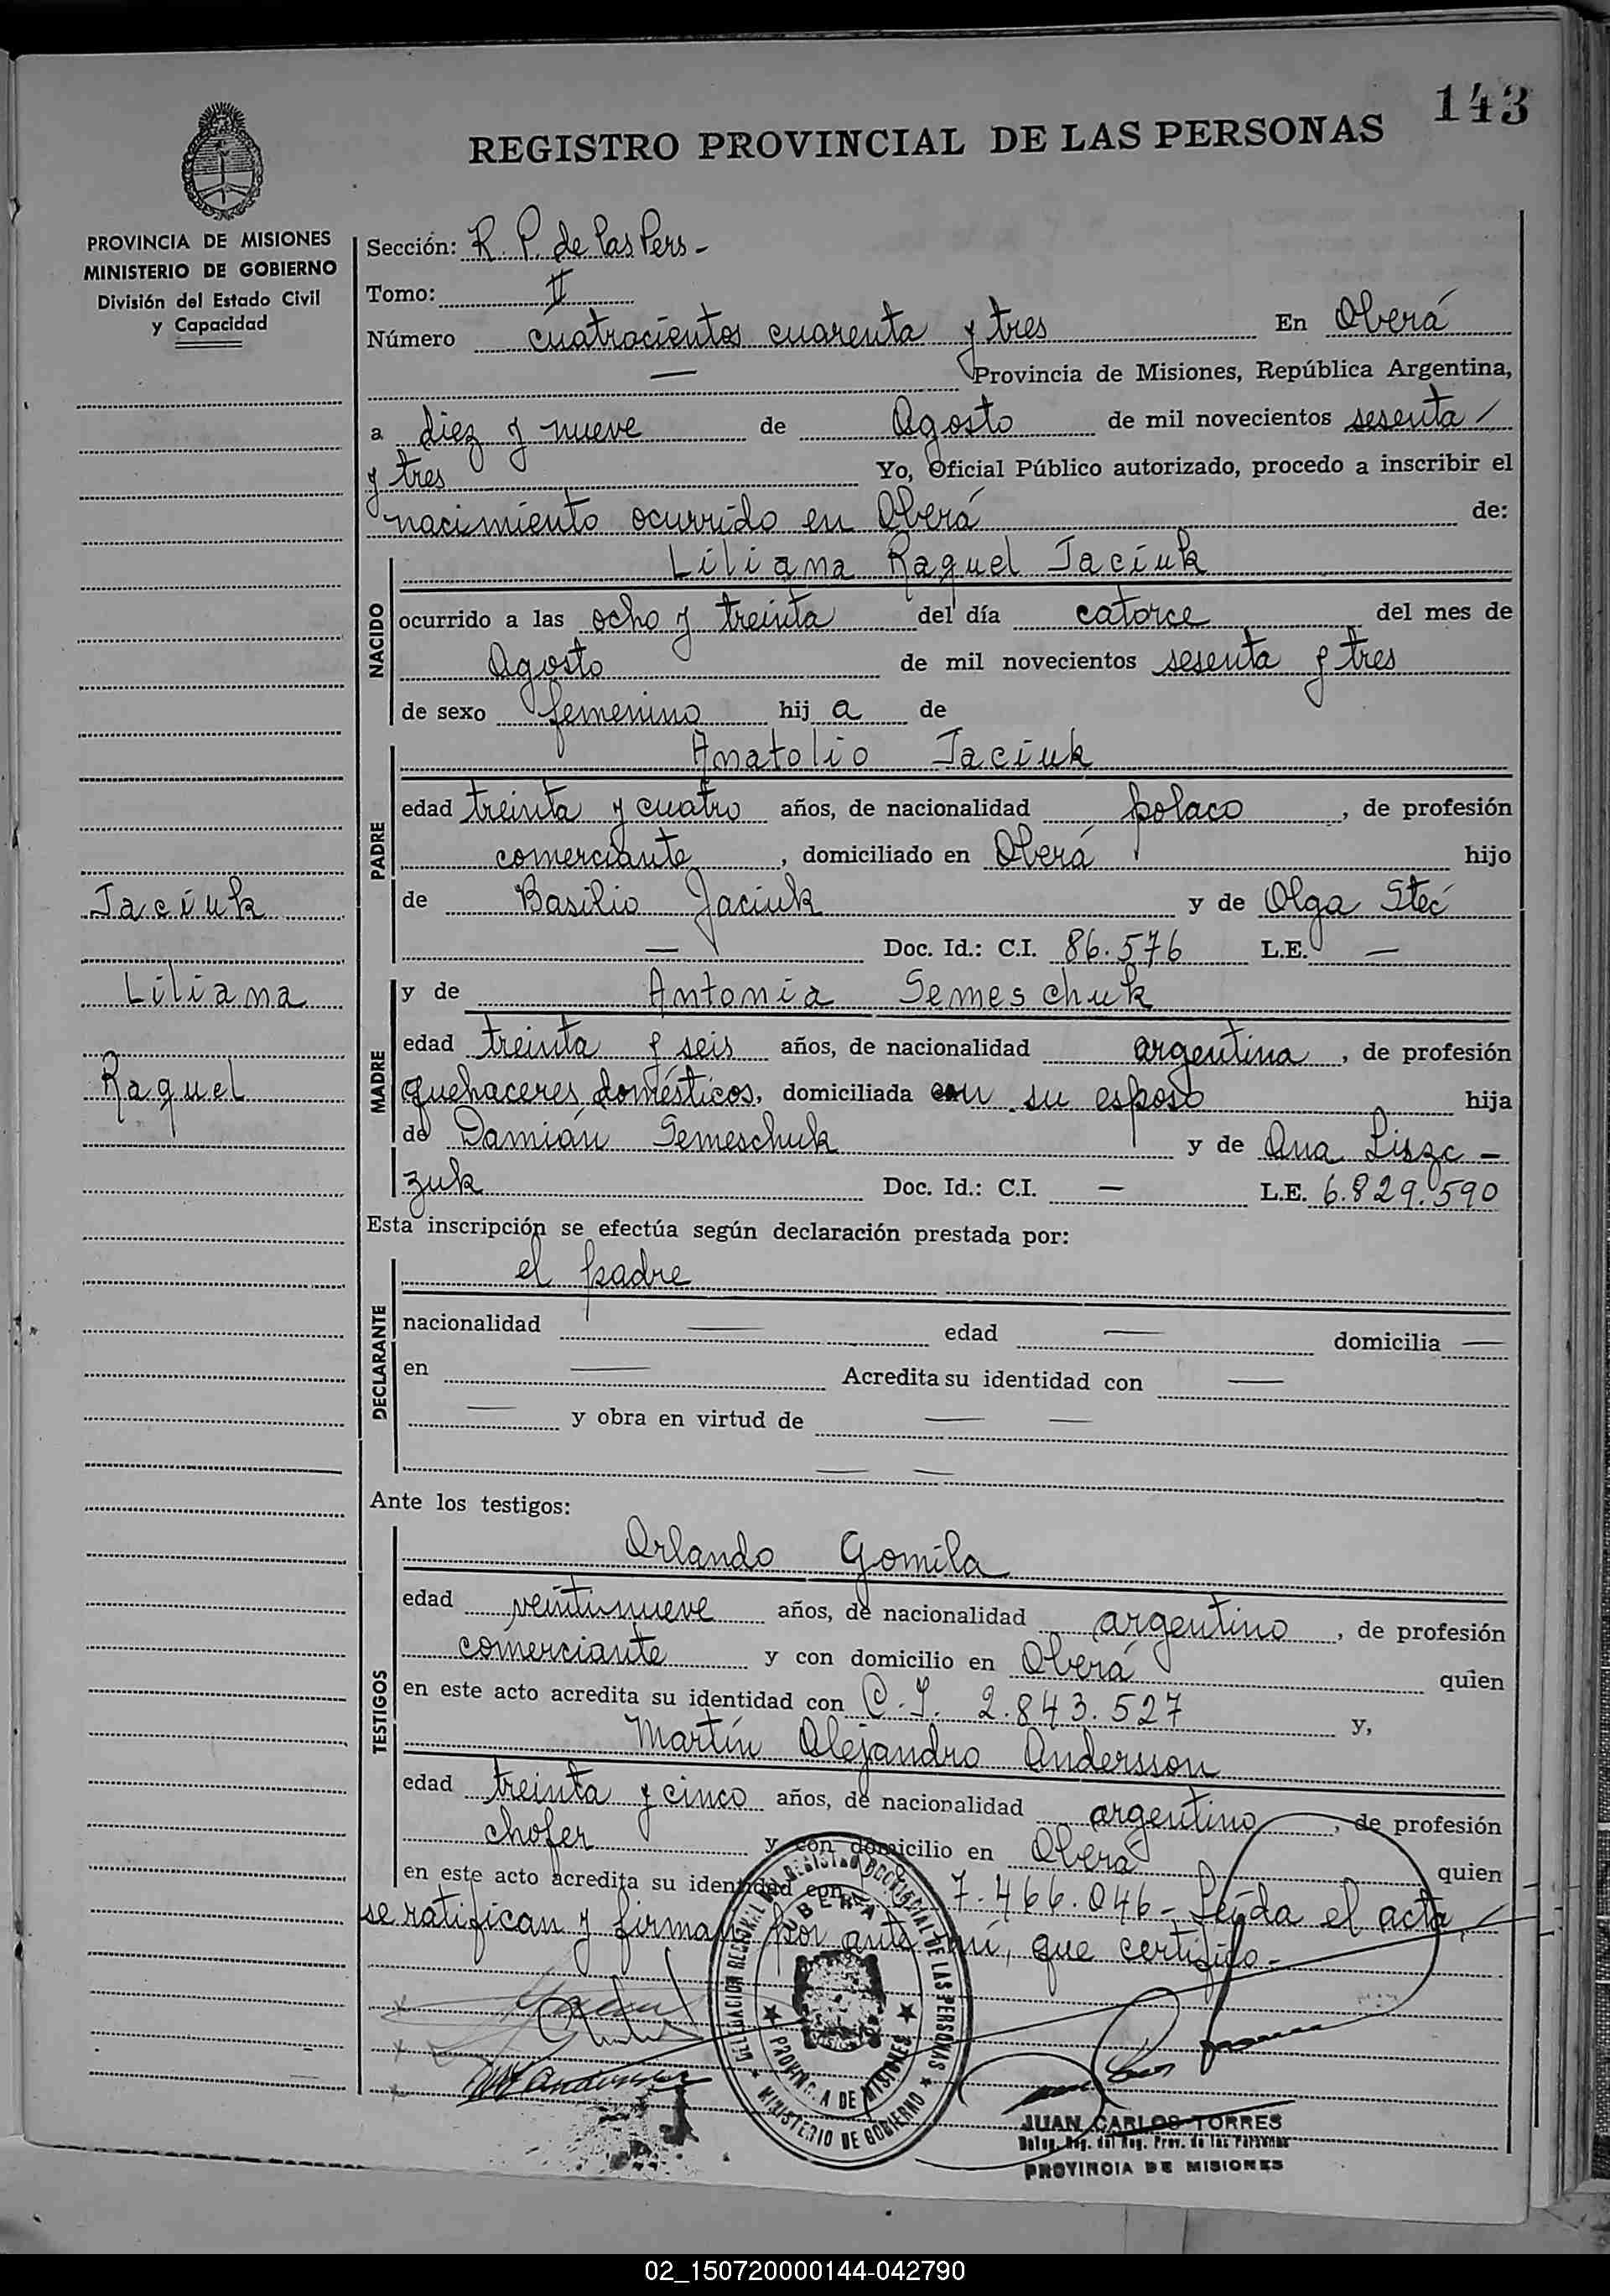 143
REGISTRO PROVINCIAL DE LAS PERSONAS
PROVINCIA DE MISIONES
MINISTERIO DE GOBIERNO
División del Estado Civil
y Capacidad
Jaciuk
Liliana
Raquel
Sección: R. P. de las Pers -
Tomo: II
Número cuatrocientos cuarenta y tres En Oberá
— Provincia de Misiones, República Argentina,
a diez y nueve de Agosto de mil novecientos sesenta /
y tres Yo, Oficial Público autorizado, procedo a inscribir el
nacimiento ocurrido en Oberá de:
NACIDO
Liliana Raquel Jaciuk
ocurrido a las ocho y treinta del día catorce del mes de
Agosto de mil novecientos sesenta y tres
de sexo femenino hij a de
PADRE
Anatolio Jaciuk
edad treinta y cuatro años, de nacionalidad polaco, de profesión
comerciante, domiciliado en Oberá hijo
de Basilio Jaciuk y de Olga Steć
— Doc. Id.: C.I. 86.576 L.E. —
MADRE
y de Antonia Semeschuk
edad treinta y seis años, de nacionalidad argentina, de profesión
quehaceres domésticos, domiciliada con su esposo hija
de Damián Semeschuk y de Ana Liszc -
zuk Doc. Id.: C.I. — L.E. 6.829.590
Esta inscripción se efectúa según declaración prestada por:
DECLARANTE
el padre
nacionalidad — edad — domicilia —
en — Acredita su identidad con —
— y obra en virtud de — —
— —
Ante los testigos:
TESTIGOS
Orlando Gomila
edad veintinueve años, de nacionalidad argentino, de profesión
comerciante y con domicilio en Oberá quien
en este acto acredita su identidad con C.I. 2.843.527 y,
Martín Alejandro Andersson
edad treinta y cinco años, de nacionalidad argentino, de profesión
chofer y con domicilio en Oberá quien
en este acto acredita su identidad con 7.466.046 - Leída el acta,
se ratifican y firman por ante mí, que certifico -
DELEGACION REGIONAL DEL REGISTRO PROVINCIAL DE LAS PERSONAS
OBERA
PROVINCIA DE MISIONES
MINISTERIO DE GOBIERNO
JUAN CARLOS TORRES
Deleg. Reg. del Reg. Prov. de las Personas
PROVINCIA DE MISIONES
02_150720000144-042790